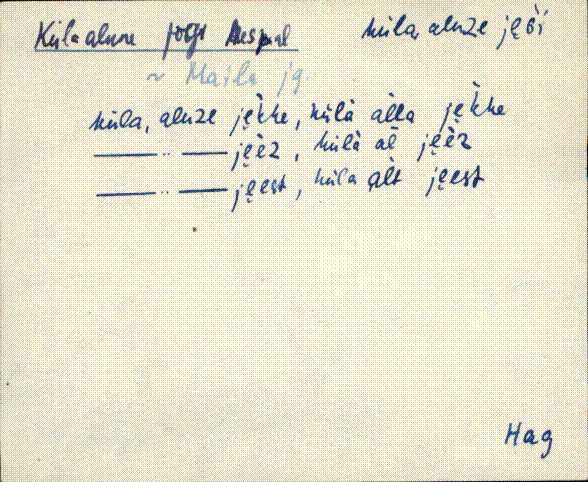 Külaalune jõgi küla, aluze jẹ̀G̀i
~ Maila jg.
küla, aluze jẹ̀kke, külà àlla jẹ̀kke
—— .. —— jẹèz, külà al jẹèz
—— .. —— jẹest, küla alt jẹest
Hag